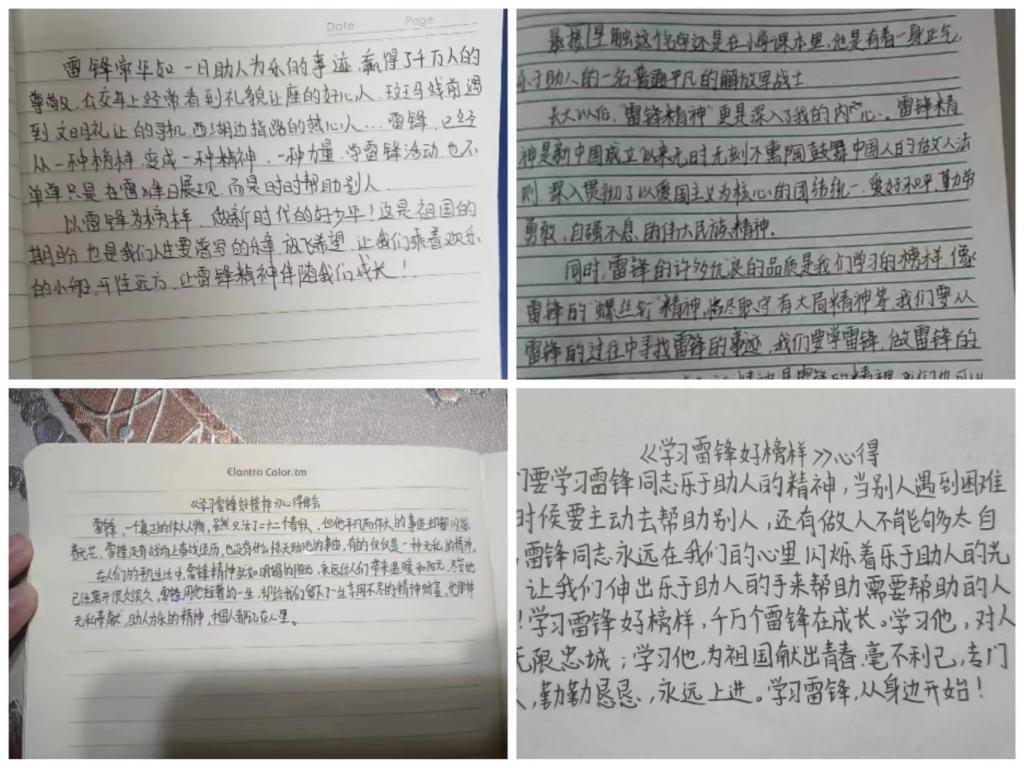 Date Page.
雷锋常年如一日助人为乐的事迹,赢得了千万人的
尊敬,公交车上经常看到礼貌让座的好心人,斑马线前遇
到文明礼让的司机,西湖边指路的热心人…雷锋,已经
从一种榜样,变成一种精神,一种力量,学雷锋活动,也不
单单只是在雷锋日展现,而是时时帮助别人
以雷锋为榜样,做新时代的好少年!这是祖国的
期盼,也是我们人生要谱写的乐章,放飞希望,让我们乘着欢乐
的小船,开往远方,让雷锋精神伴随我们成长!
最接触这个名字还是在小学课本里,他是有着一身正气,
乐于助人的一名普通平凡的解放军战士
长大以后,"雷锋精神"更是深入了我的内心。雷锋精
神是新中国成立以来无时无刻不熏陶鼓舞中国人民的做人法
则,深入贯彻了以爱国主义为核心的团结统一、爱好和平、勤劳
勇敢、自强不息的伟大民族精神。
同时,雷锋的许多优良的品质是我们学习的榜样,像
雷锋的"螺丝钉"精神,恪尽职守有大局精神等,我们要从
雷锋的过往中寻找雷锋的事迹,我们要学雷锋,做雷锋的
精神是雷锋的精神,我们也可以
Elantra Color.tm
《学习雷锋好榜样》心得体会
雷锋,一个真正的伟大人物,虽然只活了二十二个春秋,但他平凡而伟大的事迹却都闪烁
着光芒,雷锋没有战场上奋战经历,也没有什么惊天动地的事迹,有的仅仅是一种无私的精神。
在人们的平凡生活中,雷锋精神就如明媚的阳光,永远给人们带来温暖和阳光,尽管他
已经离开很久很久,雷锋用他短暂的一生,却给我们留下了一生享用不尽的精神财富,他那种
无私奉献,助人为乐的精神,中国人都记在心里。
《学习雷锋好榜样》心得
们要学习雷锋同志乐于助人的精神,当别人遇到困难
时候要主动去帮助别人,还有做人不能够太自
雷锋同志永远在我们的心里闪烁着乐于助人的光
让我们伸出乐于助人的手来帮助需要帮助的人
!学习雷锋好榜样,千万个雷锋在成长。学习他,对人
无限忠城;学习他,为祖国献出青春,毫不利己,专门
人,勤勤恳恳,永远上进。学习雷锋,从身边开始!